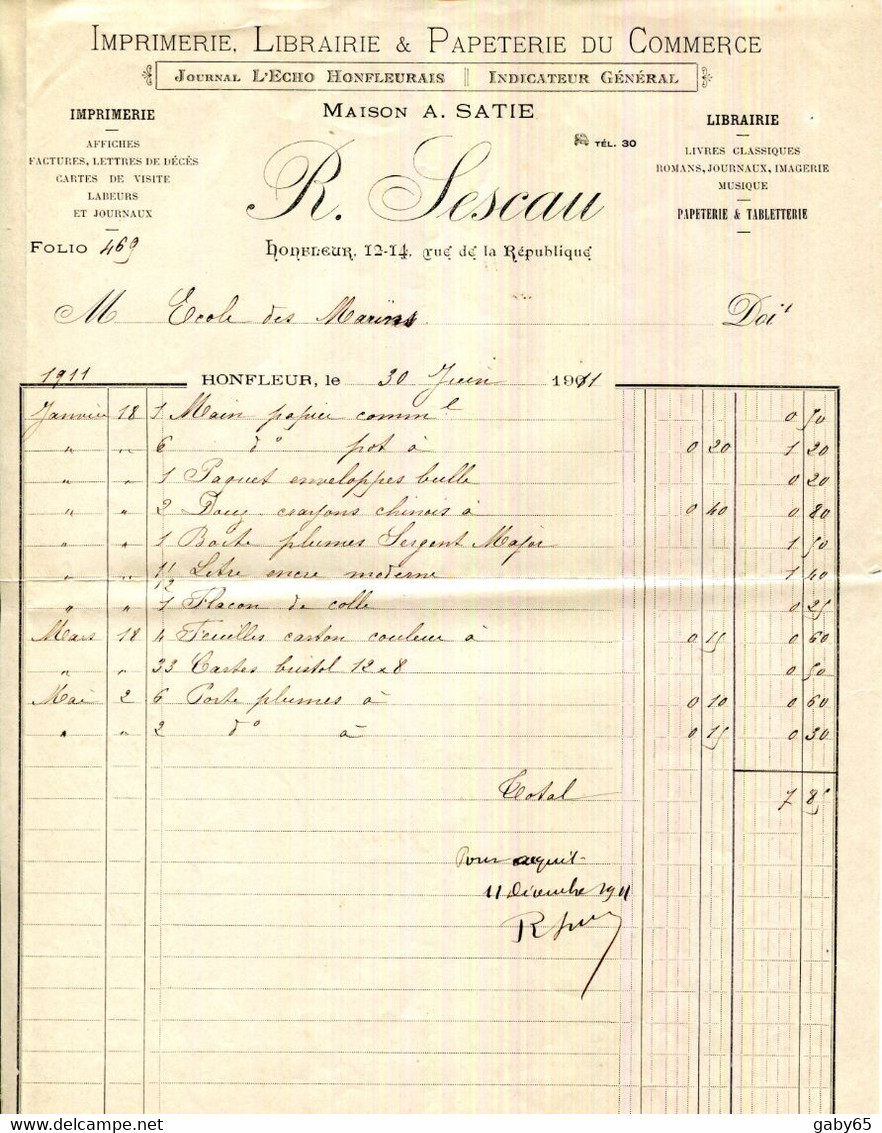 IMPRIMERIE, LIBRAIRIE & PAPETERIE DU COMMERCE
JOURNAL L'ECHO HONFLEURAIS || INDICATEUR GÉNÉRAL
MAISON A. SATIE
TÉL. 30
IMPRIMERIE
AFFICHES
FACTURES, LETTRES DE DÉCÈS
CARTES DE VISITE
LABEURS
ET JOURNAUX
LIBRAIRIE
LIVRES CLASSIQUES
ROMANS, JOURNAUX, IMAGERIE
MUSIQUE
PAPETERIE & TABLETTERIE
R. Sescau
FOLIO 469
HONFLEUR, 12-14, rue de la République
M Ecole des Marins Doit
1911 HONFLEUR, le 30 Juin 1911
Janvier 18 1 Main papier comml 0 50
" " 6 do pot à 0 20 1 20
" " 1 Paquet enveloppes bulle 0 20
" " 2 Douz crayons chinois à 0 40 0 80
" " 1 Boite plumes Sergent Major 1 50
" " 1 1/2 Litre encre moderne 1 40
" " 1 Flacon de colle 0 25
Mars 18 4 Feuilles carton couleur à 0 15 0 60
" " 33 Cartes bristol 12 x 8 0 50
Mai 2 6 Porte plumes à 0 10 0 60
" " 2 do à 0 15 0 30
Total 7 85
Pour acquit
11 Décembre 1911
gaby65